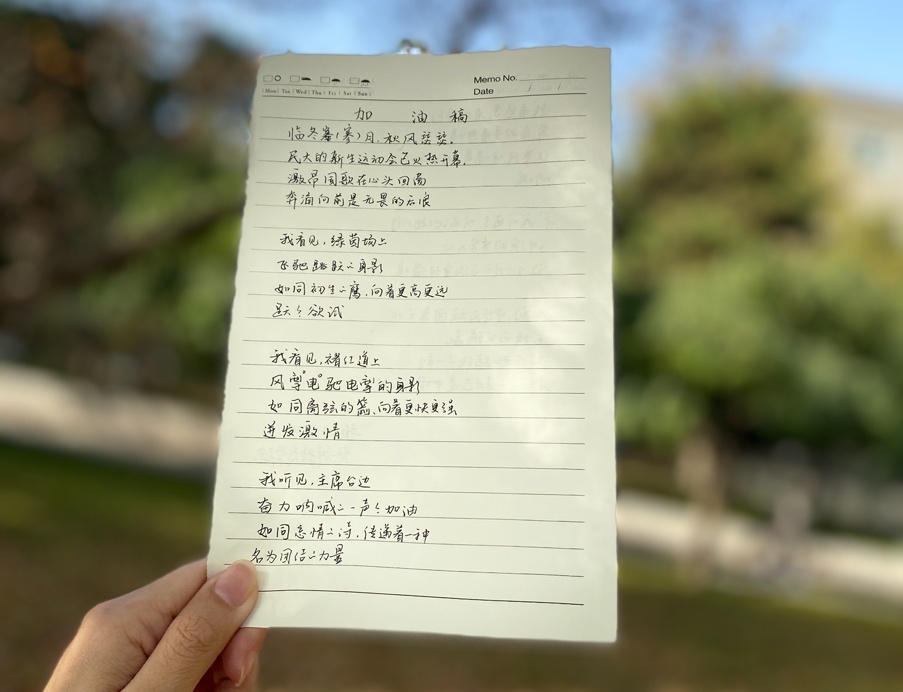 Memo No.
Mon Tue Wed Thu Fri Sat Sun
Date / /
加 油 稿
临冬塞(寒)月,秋风瑟瑟,
民大的新生运动会已火热开幕,
激昂国歌在心头回荡
奔涌向前是无畏的后浪
我看见,绿茵场上
飞驰跳跃的身影
如同初生的鹰,向着更高更远
跃跃欲试
我看见,褚红道上
风雩"电"驰电掣的身影
如同离弦的箭,向着更快更强
迸发激情
我听见,主席台边
奋力呐喊的一声声加油
如同恣情的诗,传递着一种
名为团结的力量